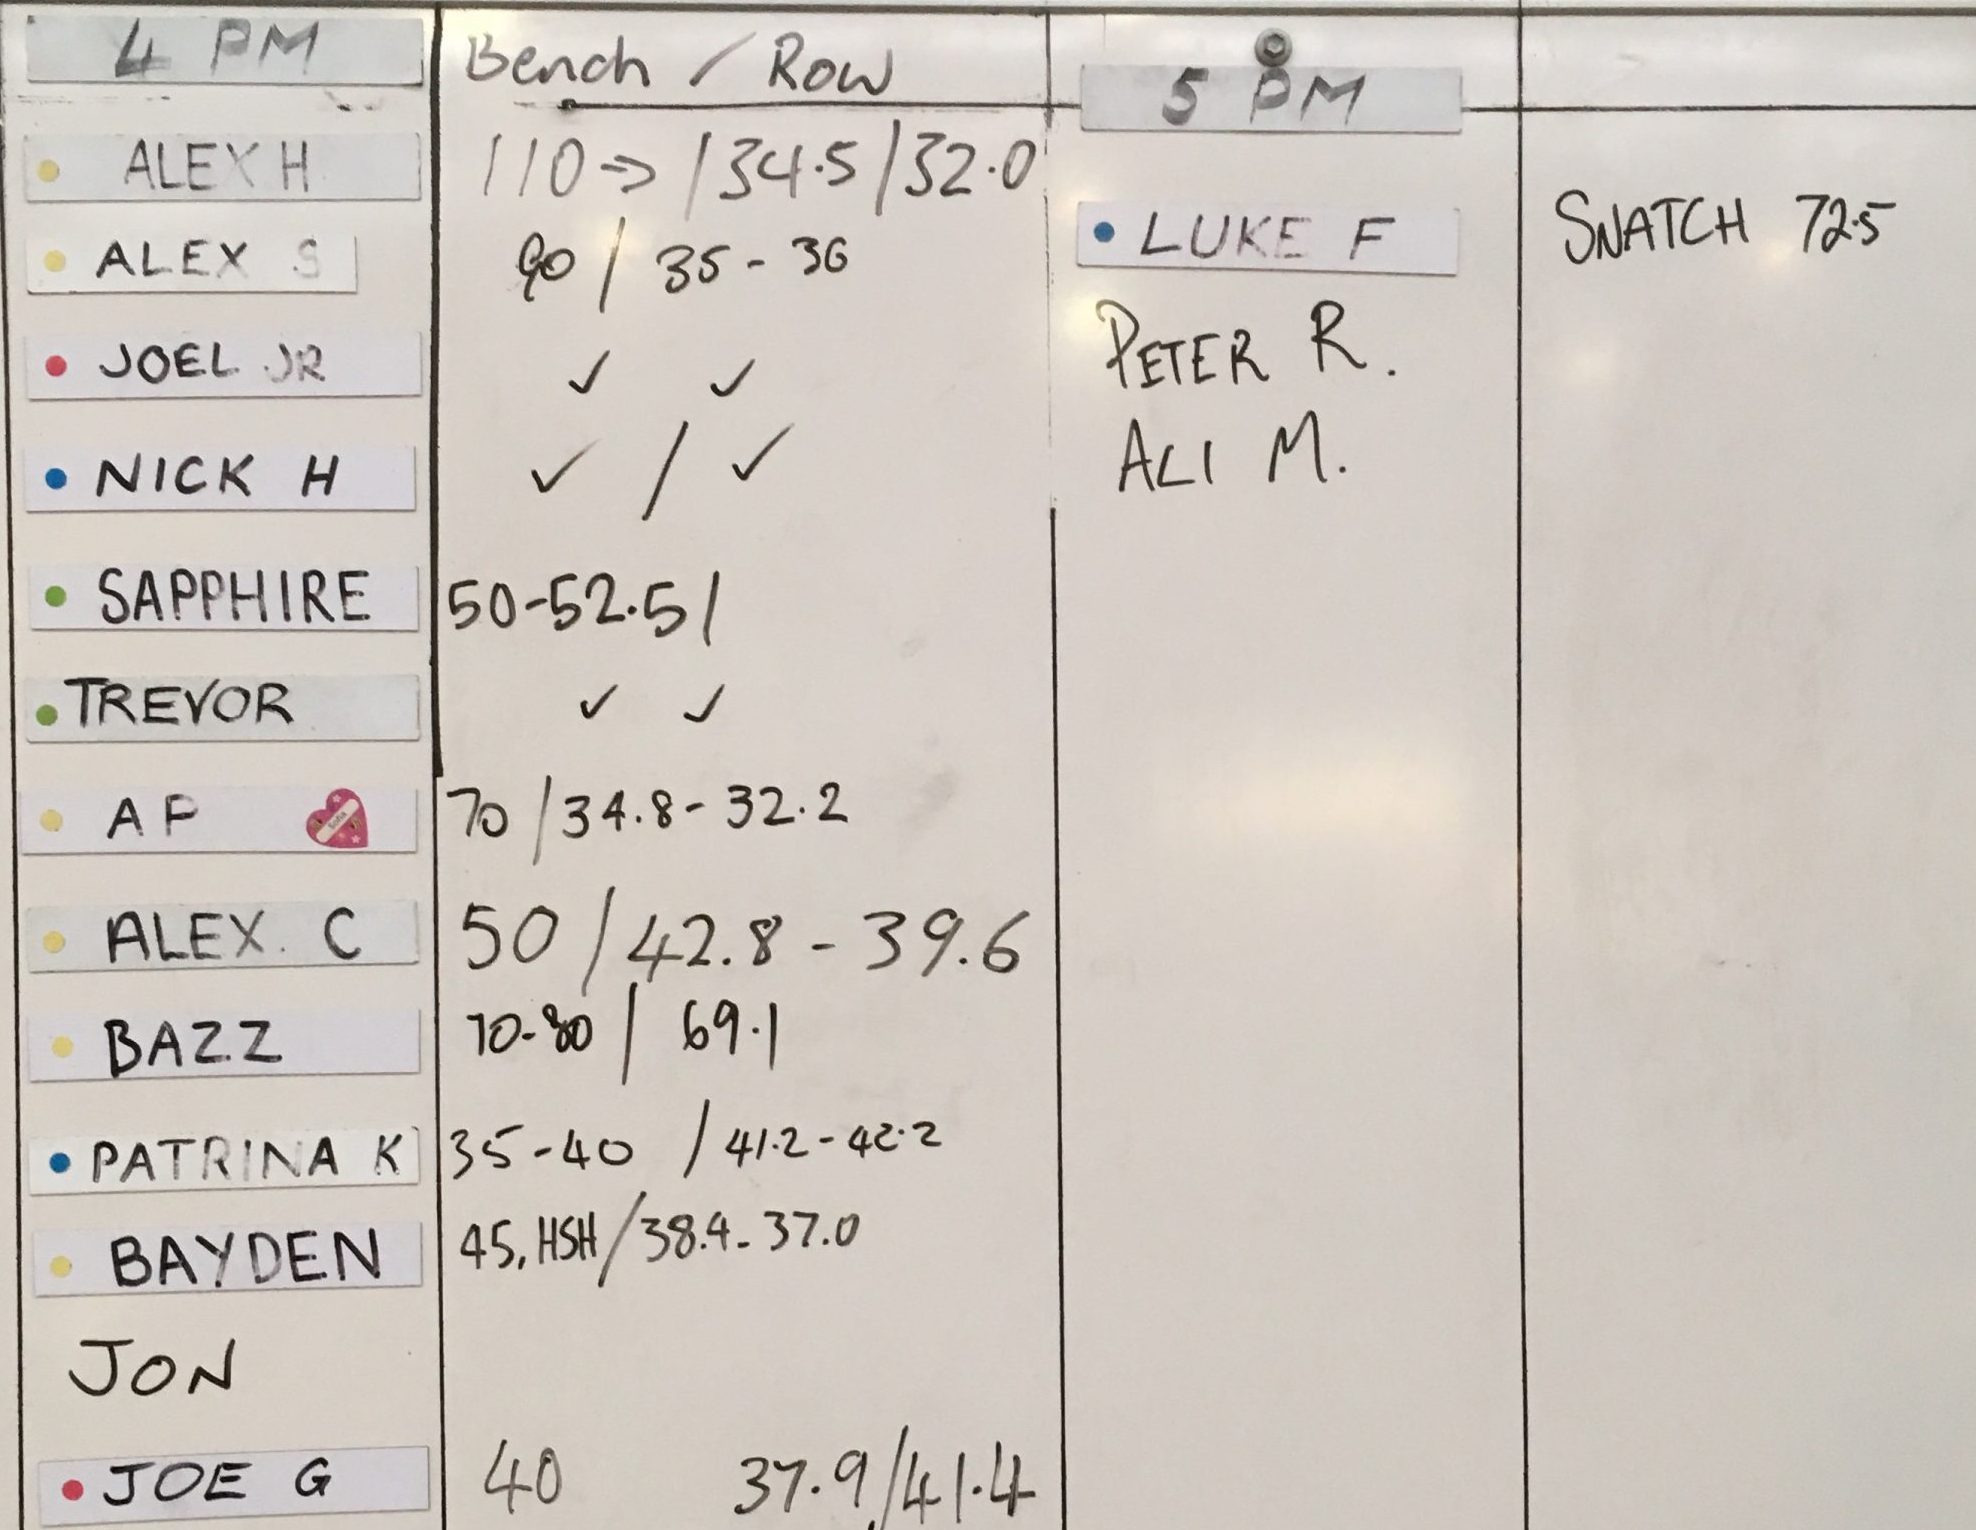 4 PM Bench / Row
ALEX H 110 => /34.5/32.0
ALEX S 90 / 35 - 36
JOEL JR ✓ ✓
NICK H ✓ / ✓
SAPPHIRE 50-52.5/
TREVOR ✓ ✓
AP 70 /34.8- 32.2
ALEX. C 50 /42.8 - 39.6
BAZZ 70-80 / 69.1
PATRINA K 35-40 / 41.2-42.2
BAYDEN 45, HSH/38.4- 37.0
JON
JOE G 40 37.9/41.4
5 PM
LUKE F SNATCH 72.5
PETER R.
ALI M.